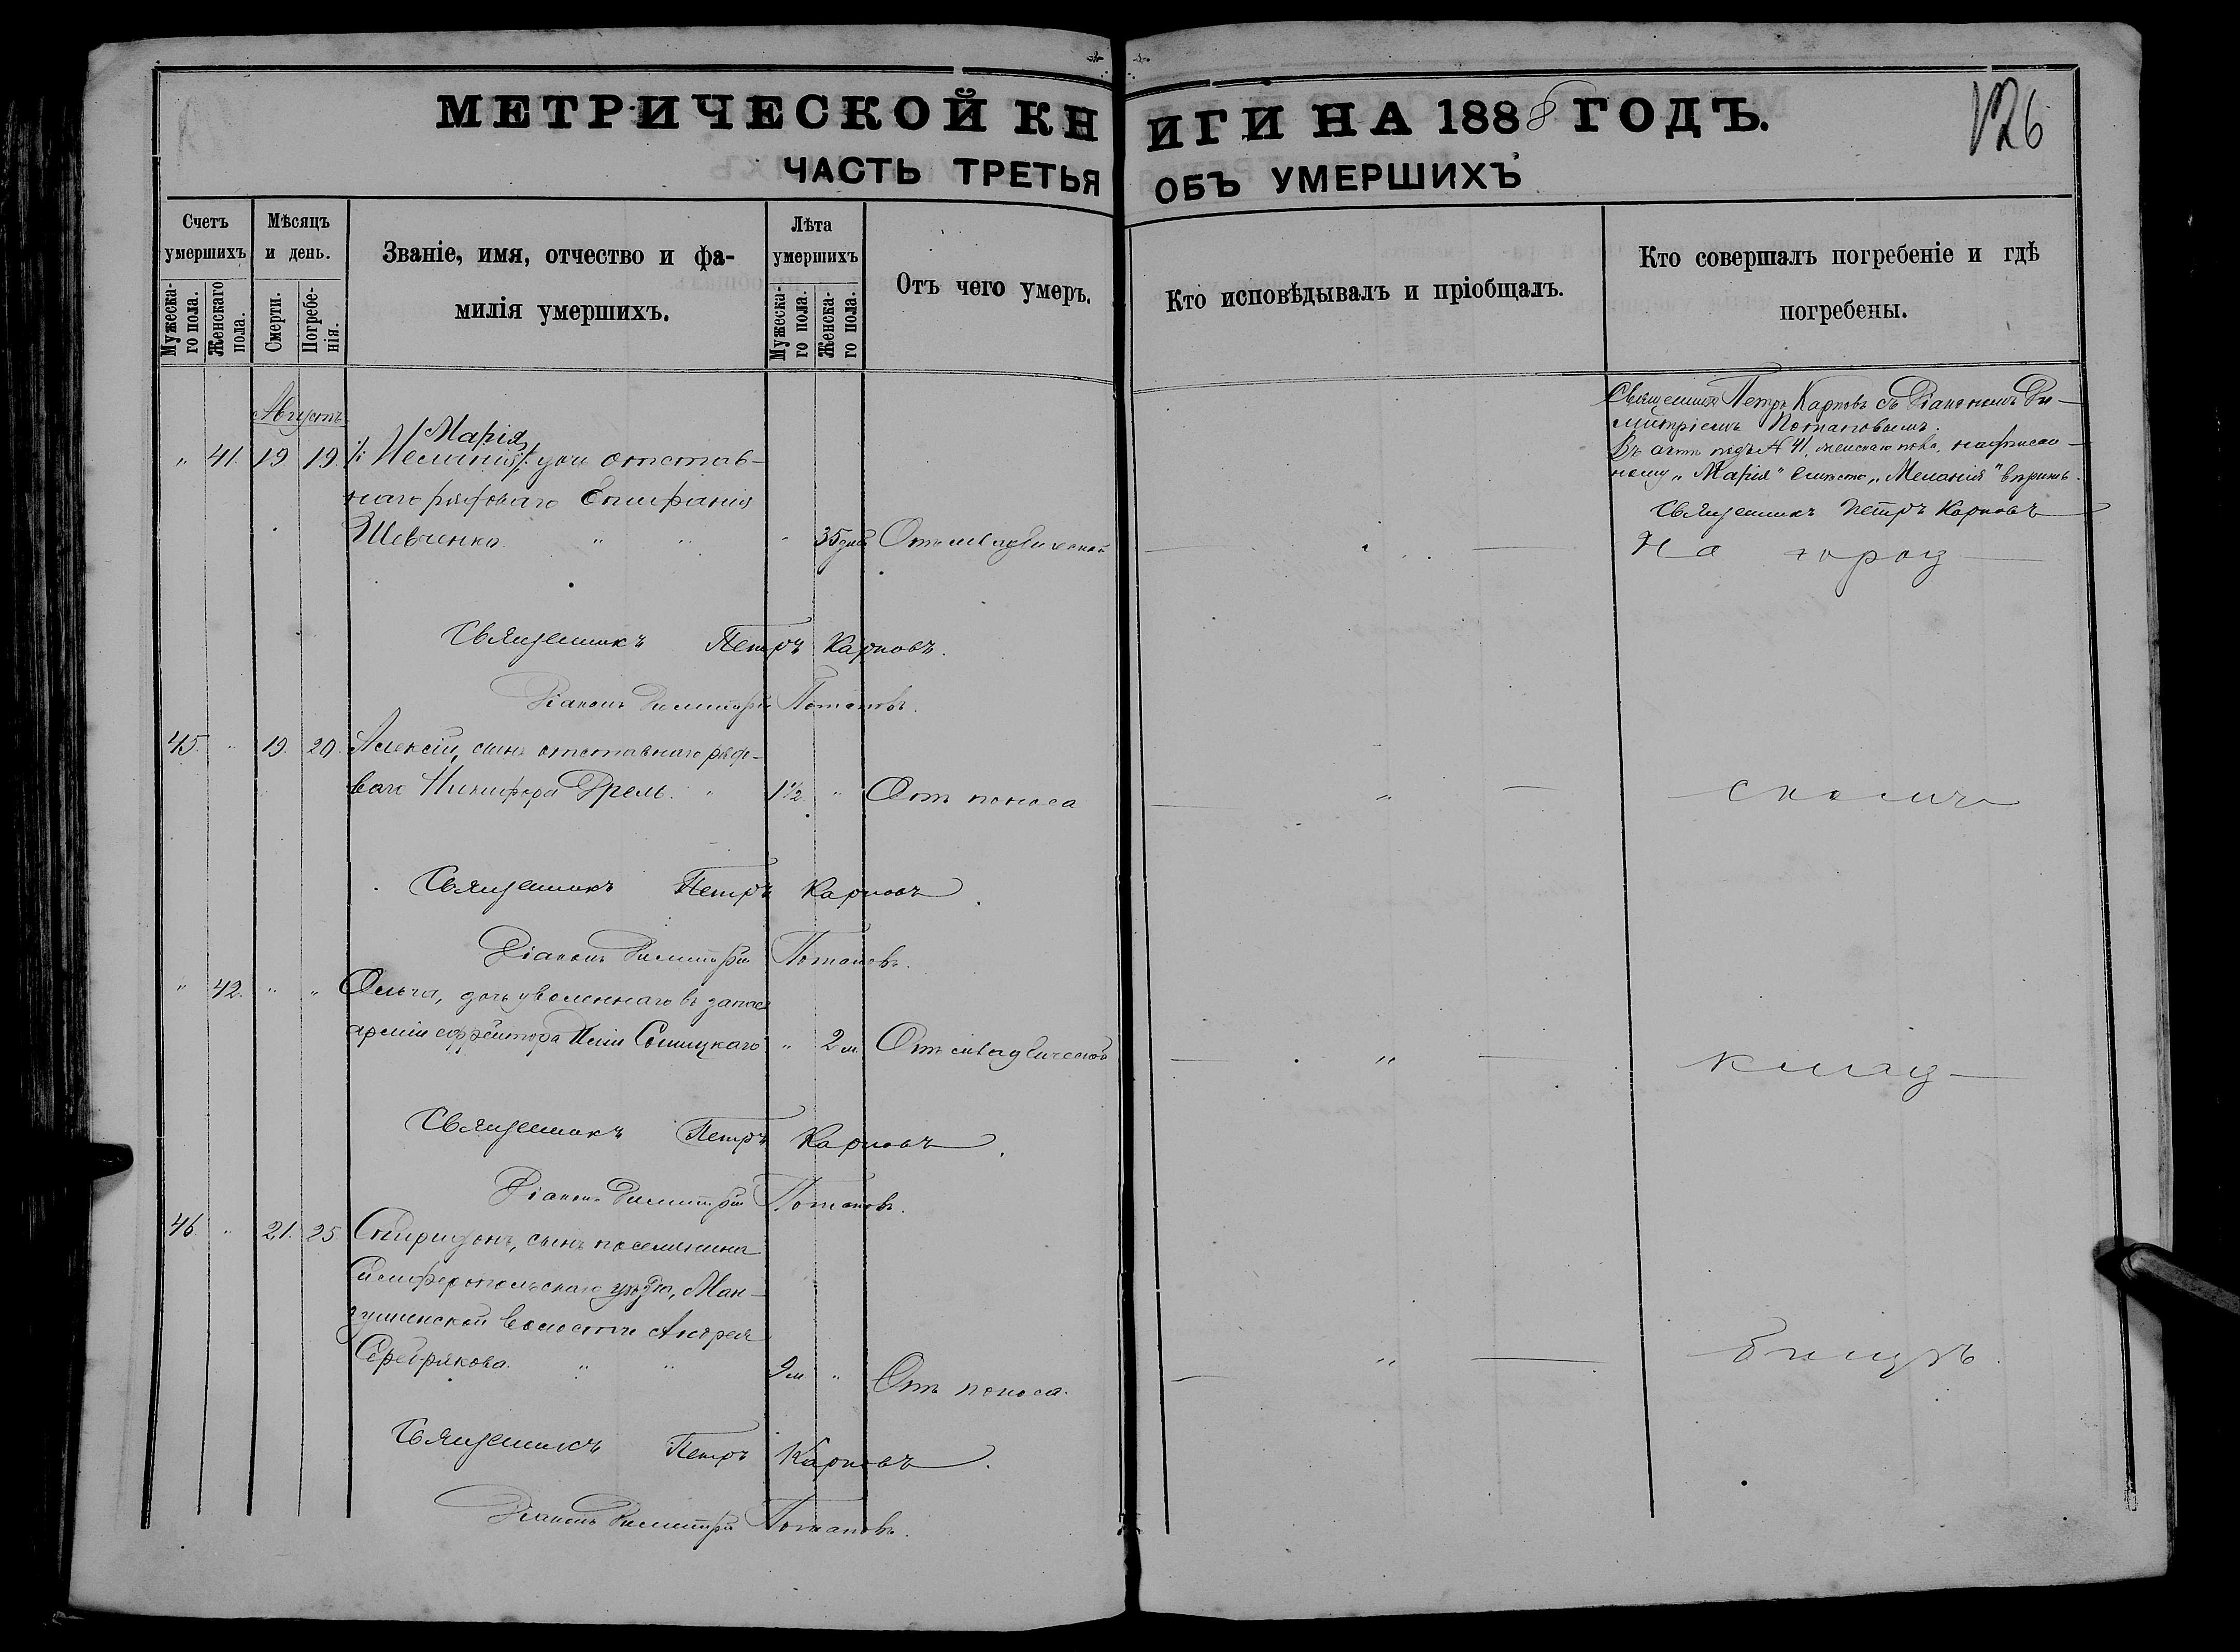 МЕТРИЧЕСКОЙ КНИГИ НА 1888 ГОДЪ.
126
ЧАСТЬ ТРЕТЬЯ ОБЪ УМЕРШИХЪ
Счетъ умершихъ
Мужеска-го пола.
Женскаго пола.
Мѣсяцъ и день.
Смерти.
Погребе-нія.
Званіе, имя, отчество и фа-
милія умершихъ.
Лѣта умершихъ
Мужеска-го пола.
Женска-го пола.
Отъ чего умеръ.
Кто исповѣдывалъ и пріобщалъ.
Кто совершалъ погребеніе и гдѣ
погребены.
Августъ
Марія
" 41. 19 19. /: Меланія :/ дочь отстав-
наго рядоваго Епифанія
Шевченко " " " 35 дней Отъ младенческой
Священникъ Петръ Карповъ съ Діакономъ Ди-
митріемъ Потаповымъ.
Въ актѣ подъ № 41, женскаго пола, надписан-
ному „Марія" вмѣсто „Меланія" вѣрить.
Священникъ Петръ Карповъ
На город
Священникъ Петръ Карповъ.
Діаконъ Димитрій Потаповъ.
45. " 19. 20. Алексій, сынъ отставнаго рядо-
ваго Никифора Дрель. " 1½ " Отъ поноса
" скомъ
Священникъ Петръ Карповъ.
Діаконъ Димитрій Потаповъ.
" 42. " " Ольга, дочь уволеннаго въ запасъ
арміи ефрейтора " 2 м. Отъ младенческой
" клад
Священникъ Петръ Карповъ.
Діаконъ Димитрій Потаповъ.
46. " 21. 25 Спиридонъ, сынъ поселянина
Симферопольскаго уѣзда, Ман-
гушинской волости Андрея
Серебрякова. " " 9 м " Отъ поноса.
" бищѣ.
Священникъ Петръ Карповъ.
Діаконъ Димитрій Потаповъ.